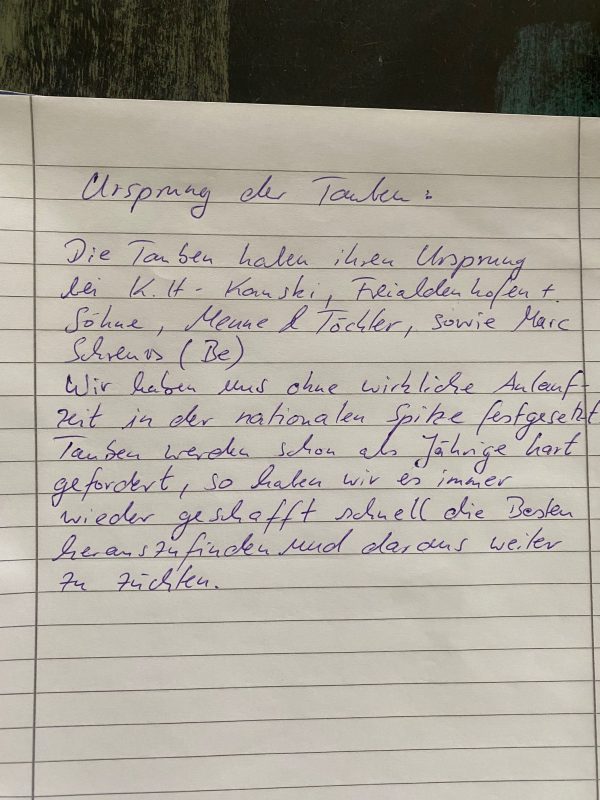 Ursprung der Tauben:
Die Tauben haben ihren Ursprung
bei K.H - Kanski, Freialdenhofen +
Söhne, Menne & Töchter, sowie Marc
(Be)
Wir haben uns ohne wirkliche Anlauf-
zeit in der nationalen Spitze festgesetzt
Tauben werden schon als Jährige hart
gefordert, so haben wir es immer
wieder geschafft schnell die Besten
herauszufinden und daraus weiter
zu züchten.